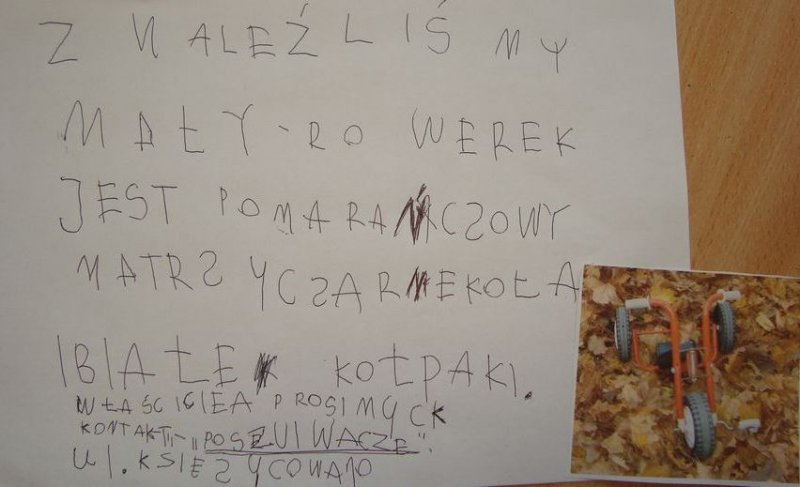 ZNALEŹLIŚMY
MAŁY-ROWEREK
JEST POMARAŃCZOWY
MATRZYCZARNEKOŁA
IBIAŁE KOŁPAKI.
WŁAŚCICIEA PROSIMYCK
KONTAKT-"POSZUIWACZE".
UL.KSIĘŻYCOWA10